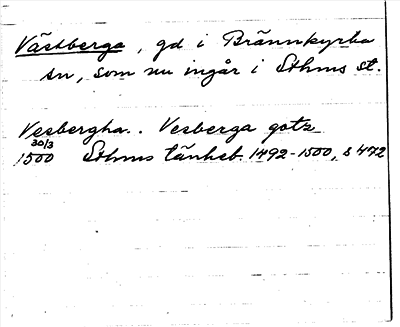 Västberga, gd i Brännkyrka
sn, som nu ingår i Sthms st.
Vesbergha.. Vesberga gotz
30/3
1500 Sthms tänkeb. 1492-1500, s 472